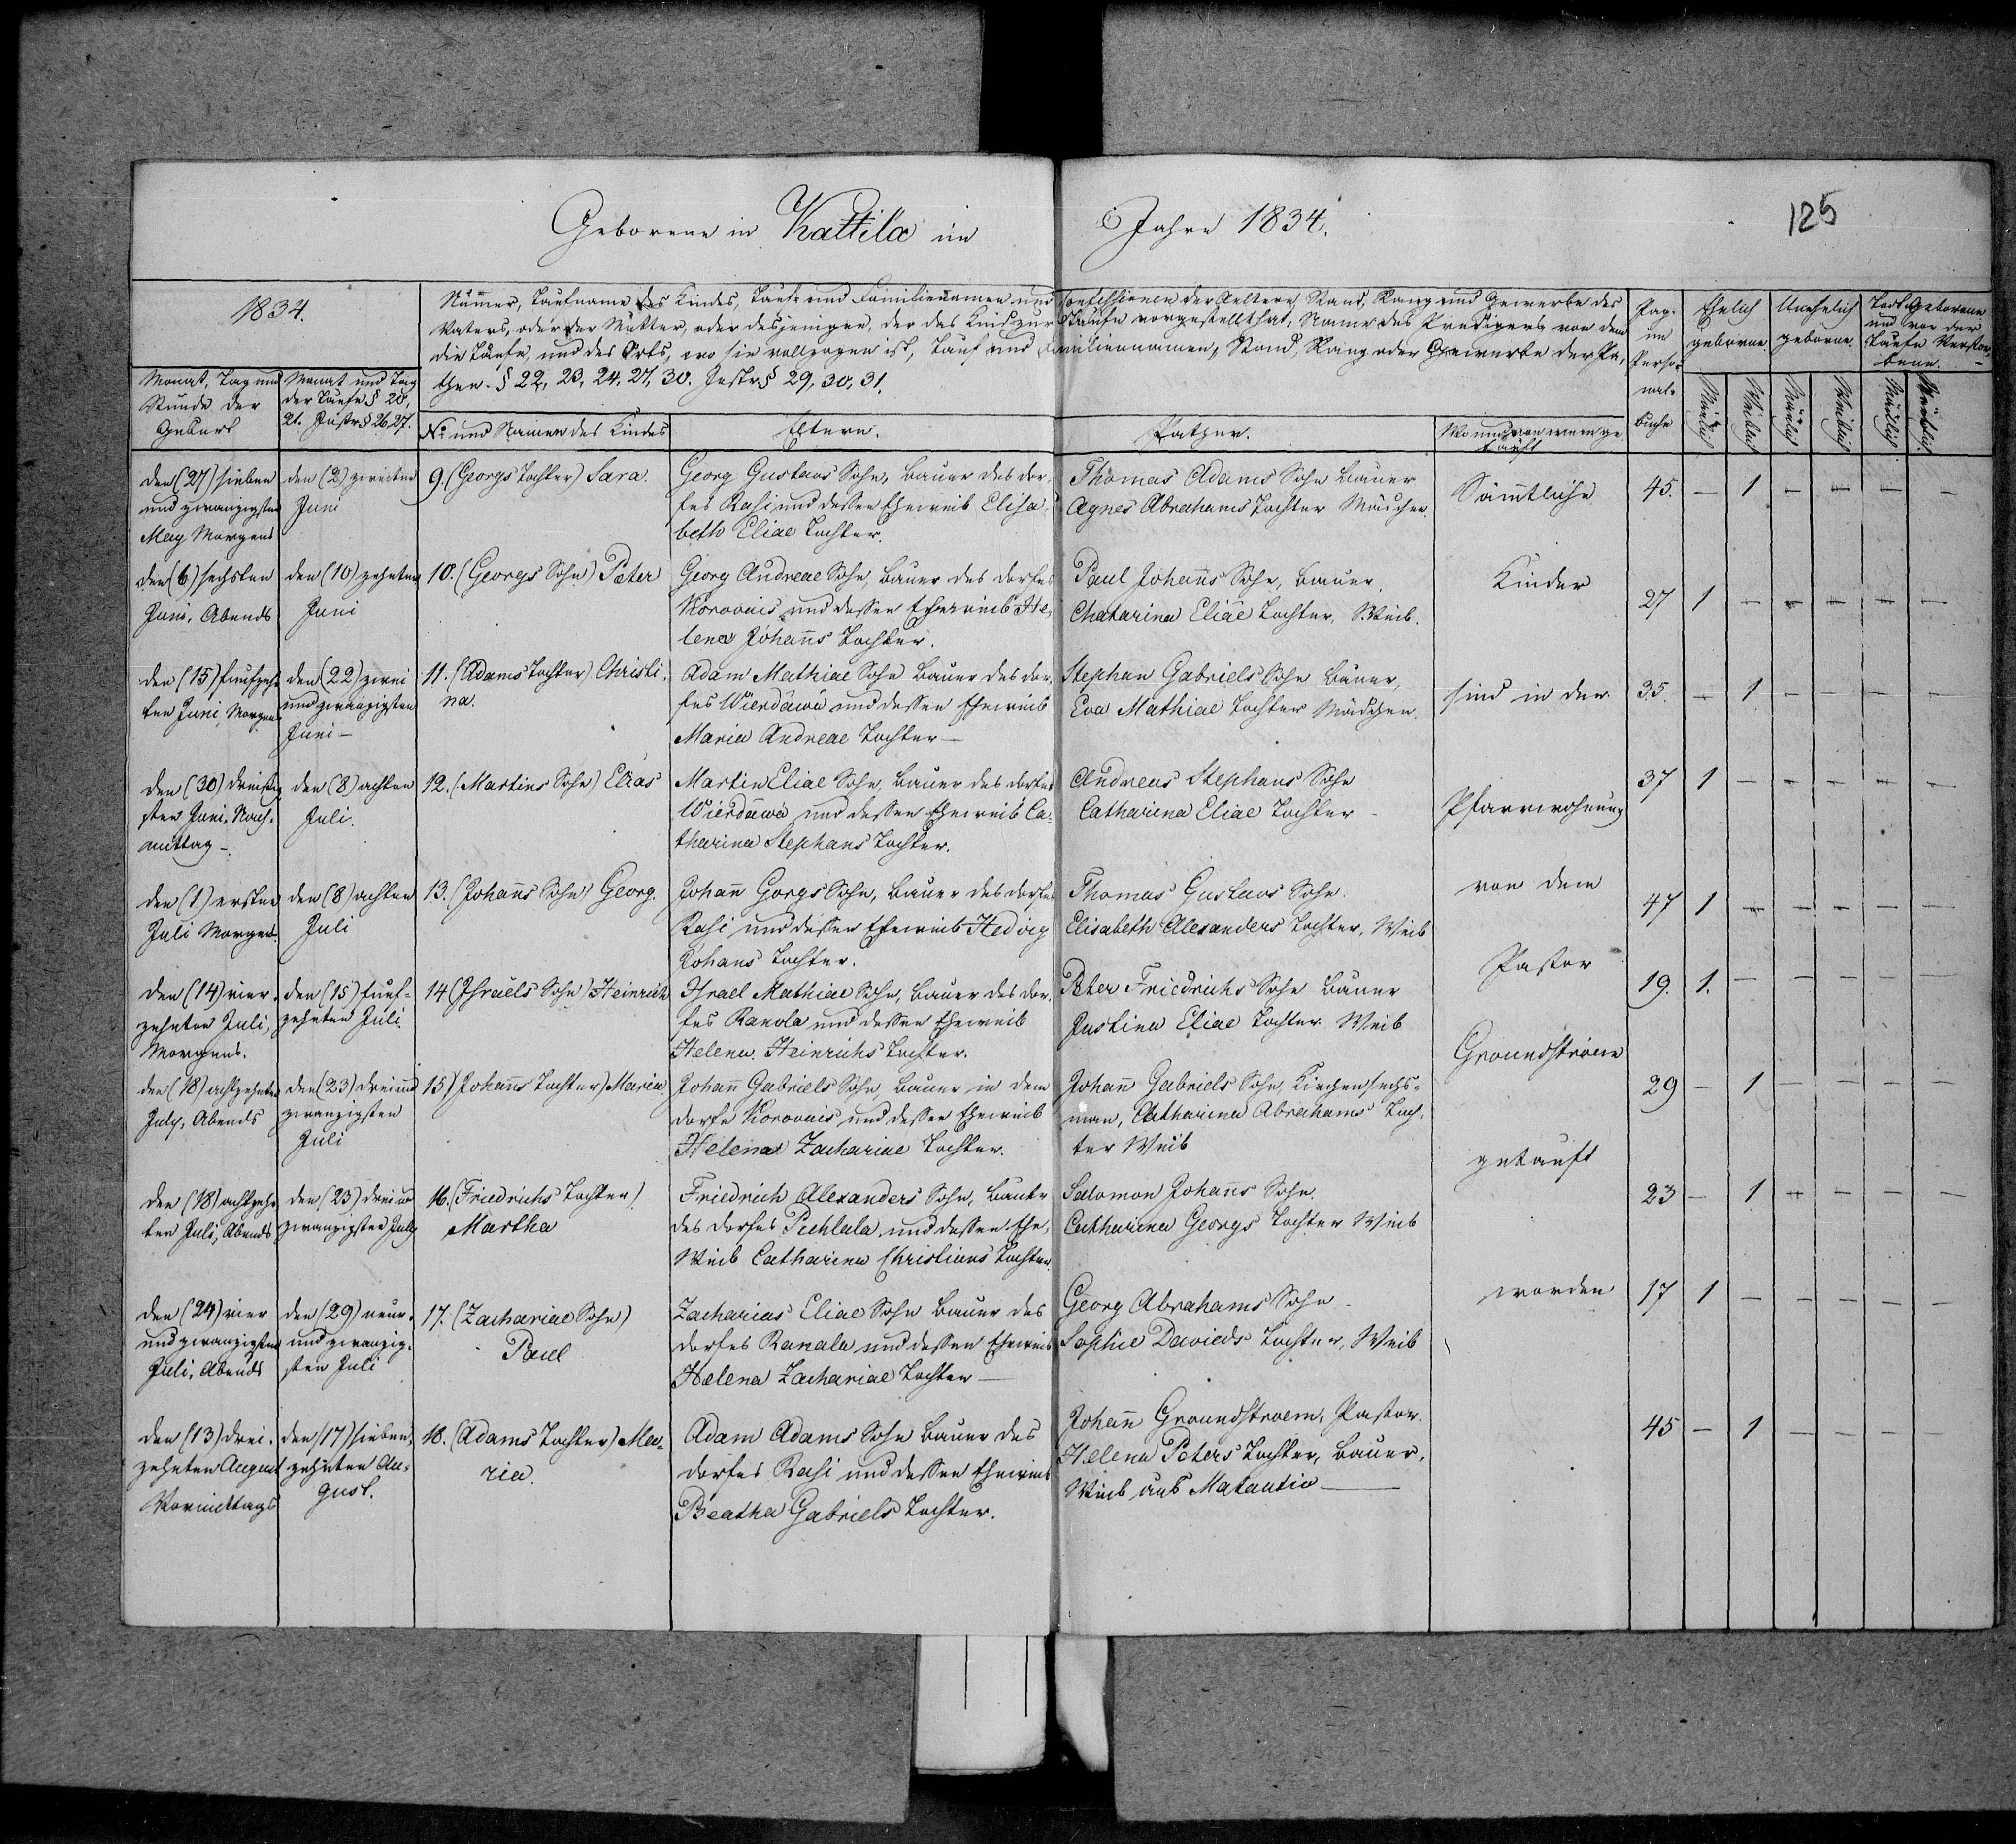 Geborene in Kattila im Jahre 1834.
125
1834.
Numer, Taufname des Kindes, Tauf- und Familiennamen und Confessionen der Aeltern, Stand, Rang und Gewerbe des
Vaters, oder der Mutter, oder desjenigen, der das Kind zur Taufe vorgestellt hat, Name des Predigers von dem
die Taufe, und des Orts, wo sie vollzogen ist, Tauf und Familiennamen, Stand, Rang oder Gewerbe der Pa,
then. § 22, 23, 24, 27, 30. Instr § 29, 30, 31.
Monat, Tag und
Stunde der
Geburt
Monat und Tag
der Taufe § 20,
21. Instr § 26, 27.
No und Namen des Kindes
Eltern.
Pathen.
Wo und von wem ge
tauft
Pag.
im
Perso-
nal-
Buche
Ehelich
geborne
Unehelich
geborne.
Todt Geborene
und vor der
Taufe Verstor,
bene.
Mänlich
Weiblich
Mänlich
Weiblich
Mänlich
Weiblich
den (27) sieben
und zwanzigsten
May Morgens
den (2) zweiten
Juni
9. (Georgs Tochter) Sara.
Georg Gustavs Sohn, Bauer des dor,
fes Rasi und dessen Eheweib Elisa,
beth Eliae Tochter.
Thomas Adams Sohn Bauer
Agnes Abrahams Tochter Mädchen.
Sämtliche
45. — 1 — — — —
den (6) sechsten
Juni, Abends
den (10) zehnten
Juni
10. (Georgs Sohn) Peter
Georg Andreae Sohn, Bauer des dorfes
Korowais und dessen Eheweib He,
lena Johañs Tochter.
Paul Johañs Sohn, Bauer,
Chatarina Eliae Tochter, S. Weib.
Kinder
27 1 — — — — —
den (15) funfzehn
ten Juni, Morgens
den (22) zwei
und zwanzigsten
Juni —
11. (Adams Tochter) Christi,
na.
Adam Mathiae Sohn Bauer des dor,
fes Wierdäwä und dessen Eheweib
Maria Andreae Tochter —
Stephan Gabriels Sohn Bauer,
Eva Mathiae Tochter Mädchen.
sind in der
35. — 1 — — — —
den (30) dreissig
sten Juni, Nach,
mittag —
den (8) achten
Juli.
12. (Martins Sohn) Elias
Martin Eliae Sohn, Bauer des dorfes
Wierdäwä und dessen Eheweib Ca-
tharina Stephans Tochter.
Andreas Stephans Sohn
Catharina Eliae Tochter —
Pfarrwohnung
37 1 — — — — —
den (1) ersten
Juli Morgens.
den (8) achten
Juli
13. (Johañs Sohn) Georg.
Johañ Gorgs Sohn, Bauer des dorfes
Rasi und dessen Eheweib Hedvig
Johans Tochter.
Thomas Gustavs Sohn.
Elisabeth Alexanders Tochter, Weib
von dem
47 1 — — — — —
den (14) vier-
zehnten Juli,
Morgens.
den (15) funf-
zehnten Juli.
14 (Israels Sohn) Heinrich
Israel Mathiae Sohn, Bauer des dor,
fes Ranola und dessen Eheweib
Helena Heinrichs Tochter.
Peter Friedrichs Sohn Bauer
Justina Eliae Tochter Weib
Pastor
19. 1. — — — — —
den (18) achtzehnten
July, Abends
den (23) drei und
zwanzigsten
Juli
15) (Johañs Tochter) Maria.
Johañ Gabriels Sohn, Bauer in dem
dorfe Korowais und dessen Eheweib
Helena Zachariae Tochter.
Johañ Gabriels Sohn, Kirchensechs-
man, Catharina Abrahams Toch,
ter Weib
Groundstroem
29 — 1 — — — —
den (18) achtzehn
ten Juli, Abends
den (23) drei und
zwanzigsten July
16. (Friedrichs Tochter)
Martha
Friedrich Alexanders Sohn, Bauer
des dorfes Pichlala und dessen Ehe,
Weib Catharina Christians Tochter.
Salomon Johañs Sohn.
Catharina Georgs Tochter Weib
getauft
23 — 1 — — — —
den (24) vier
und zwanzigsten
Juli, Abends
den (29) neun,
und zwanzig,
sten Juli
17. (Zachariae Sohn)
Paul
Zacharias Eliae Sohn Bauer des
dorfes Ranala und dessen Eheweib
Helena Zachariae Tochter —
Georg Abrahams Sohn
Sophie Davieds Tochter, Weib
worden
17 1 — — — — —
den (13) drei-
zehnten August
Vormittags
den (17) sieben,
zehnten Au-
gust.
18. (Adams Tochter) Ma-
ria.
Adam Adams Sohn Bauer des
dorfes Rasi und dessen Eheweib
Beatha Gabriels Tochter.
Johañ Groundstroem, Pastor.
Helena Peters Tochter, Bauer,
Weib aus Matautio —
45 — 1 — — — —